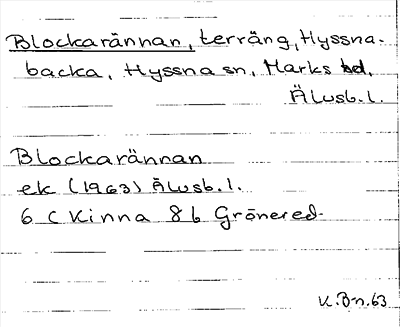 Blockarännan, terräng, Hyssna-
backa, Hyssna sn, Marks hd,
Älvsb. l.
Blockarännan
ek (1963) Älvsb. l.
6 C Kinna 8 b Grönered
K. Bn. 63